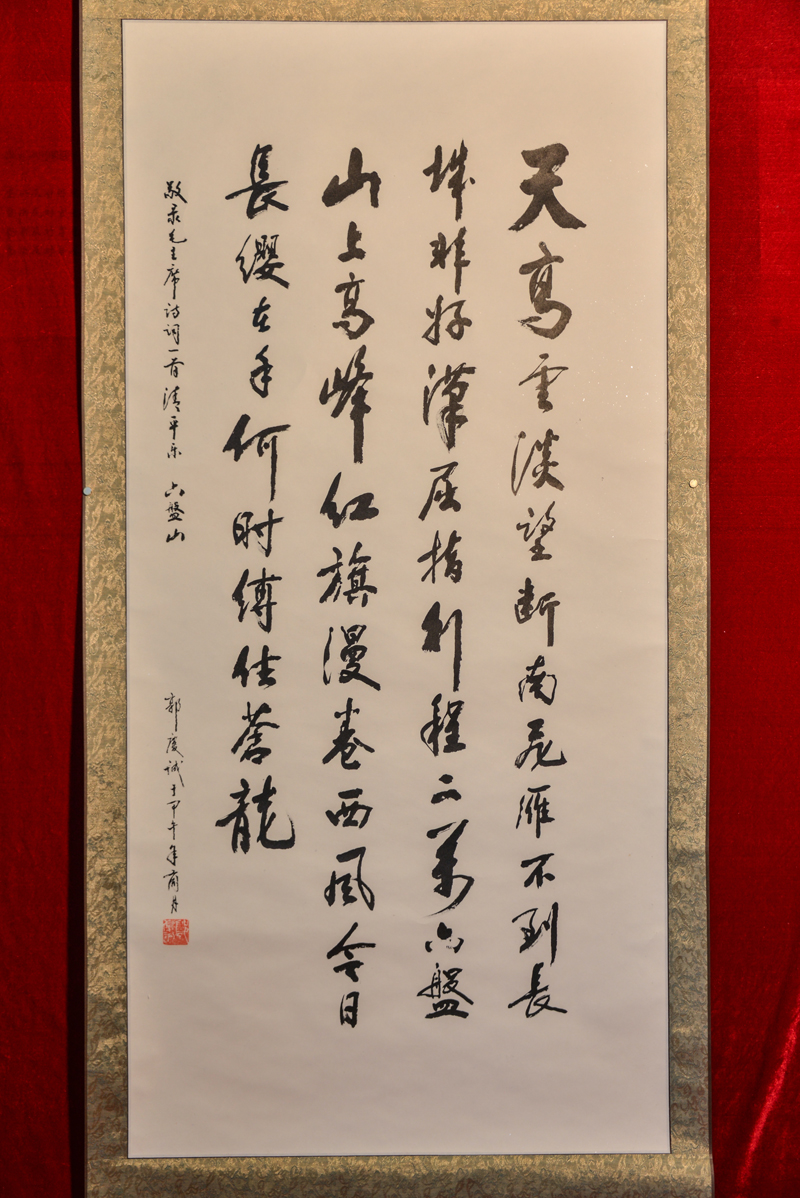 天高云淡望断南飞雁不到长
城非好漢屈指行程二萬六盤
山上高峰红旗漫卷西風今日
長缨在手何时缚住蒼龍
敬录毛主席诗词一首清平乐 六盤山
郭度诚于甲午年前月